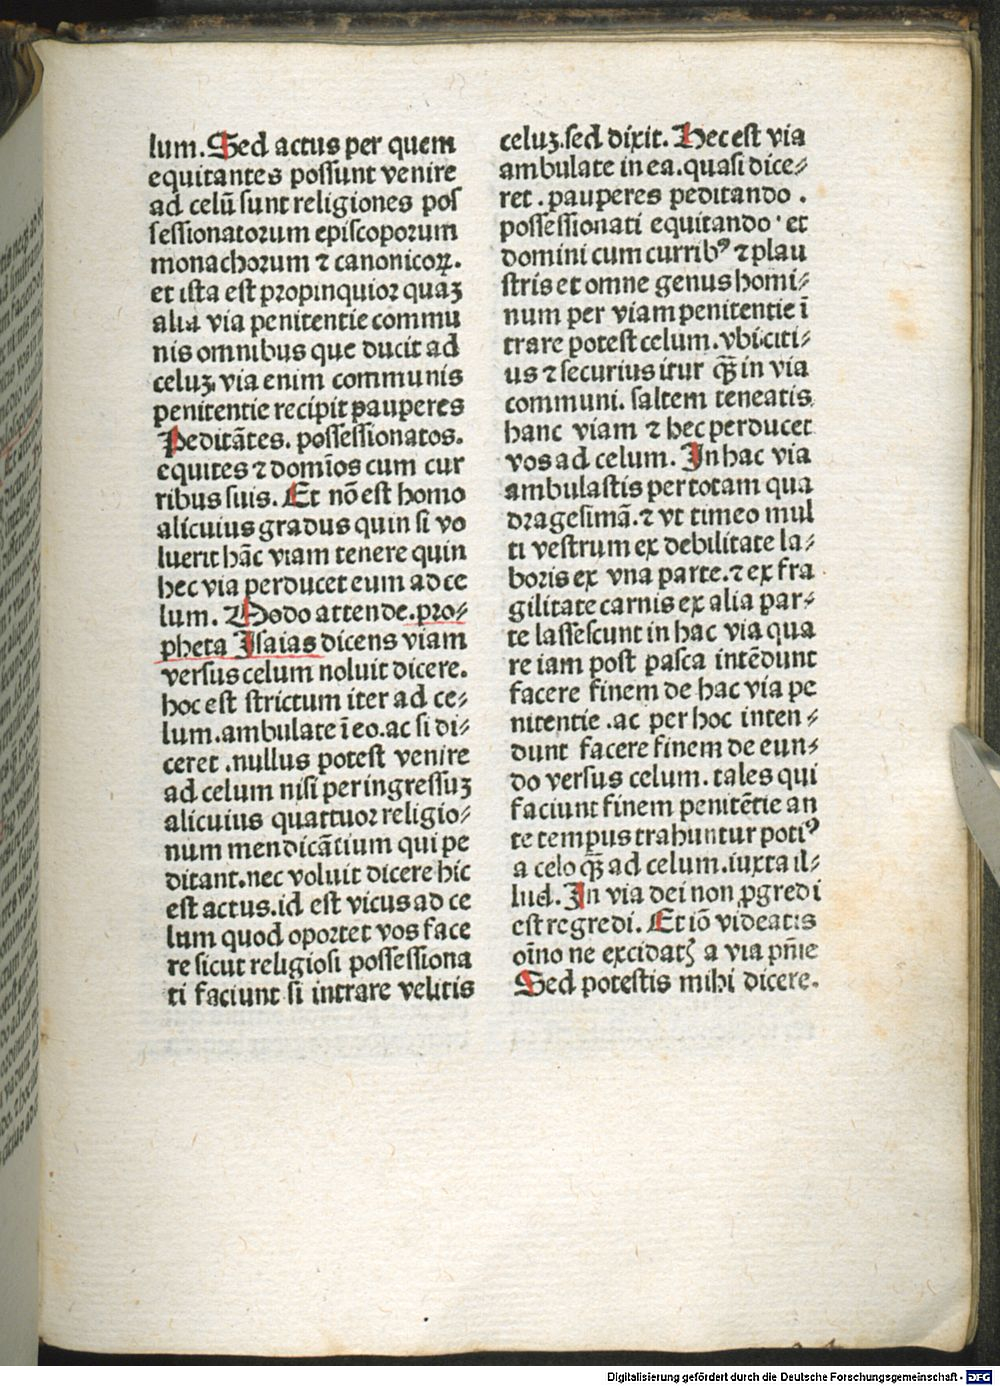 lum. Sed actus per quem
equitantes possunt venire
ad celū sunt religiones pos
sessionatorum episcoporum
monachorum ⁊ canonicoꝝ.
et ista est propinquior quaꝫ
alia via penitentie commu
nis omnibus que ducit ad
celuꝫ. via enim communis
penitentie recipit pauperes
Peditātes. possessionatos.
equites ⁊ domīos cum cur
ribus suis. Et nō est homo
alicuius gradus quin si vo
luerit hāc viam tenere quin
hec via perducet eum ad ce
lum. Modo attende. pro⸗
pheta Isaias dicens viam
versus celum noluit dicere.
hoc est strictum iter ad ce⸗
lum. ambulate ī eo. ac si di⸗
ceret . nullus potest venire
ad celum nisi per ingressuꝫ
alicuius quattuor religio⸗
num mendicātium qui pe
ditant. nec voluit dicere hic
est actus. id est vicus ad ce
lum quod oportet vos face
re sicut religiosi possessiona
ti faciunt si intrare velitis
celuꝫ. sed dixit. Hec est via
ambulate in ea. quasi dice⸗
ret . pauperes peditando .
possessionati equitando · et
domini cum curribꝰ ⁊ plau
stris et omne genus homi⸗
num per viam penitentie ī
trare potest celum. vbi citi⸗
us ⁊ securius itur ꝙ̄ in via
communi. saltem teneatis
hanc viam ⁊ hec perducet
vos ad celum. In hac via
ambulastis per totam qua
dragesimā. ⁊ vt timeo mul
ti vestrum ex debilitate la⸗
boris ex vna parte. ⁊ ex fra
gilitate carnis ex alia par⸗
te lassescunt in hac via qua
re iam post pasca intēdunt
facere finem de hac via pe
nitentie . ac per hoc inten⸗
dunt facere finem de eun⸗
do versus celum. tales qui
faciunt finem penitētie an
te tempus trahuntur potiꝰ
a celo ꝙ̄ ad celum. iuxta il⸗
lud. In via dei non ꝓgredi
est regredi. Et iō videatis
oīno ne excidatꝭ a via pn̄ie
Sed potestis mihi dicere.
Digitalisierung gefördert durch die Deutsche Forschungsgemeinschaft - DFG